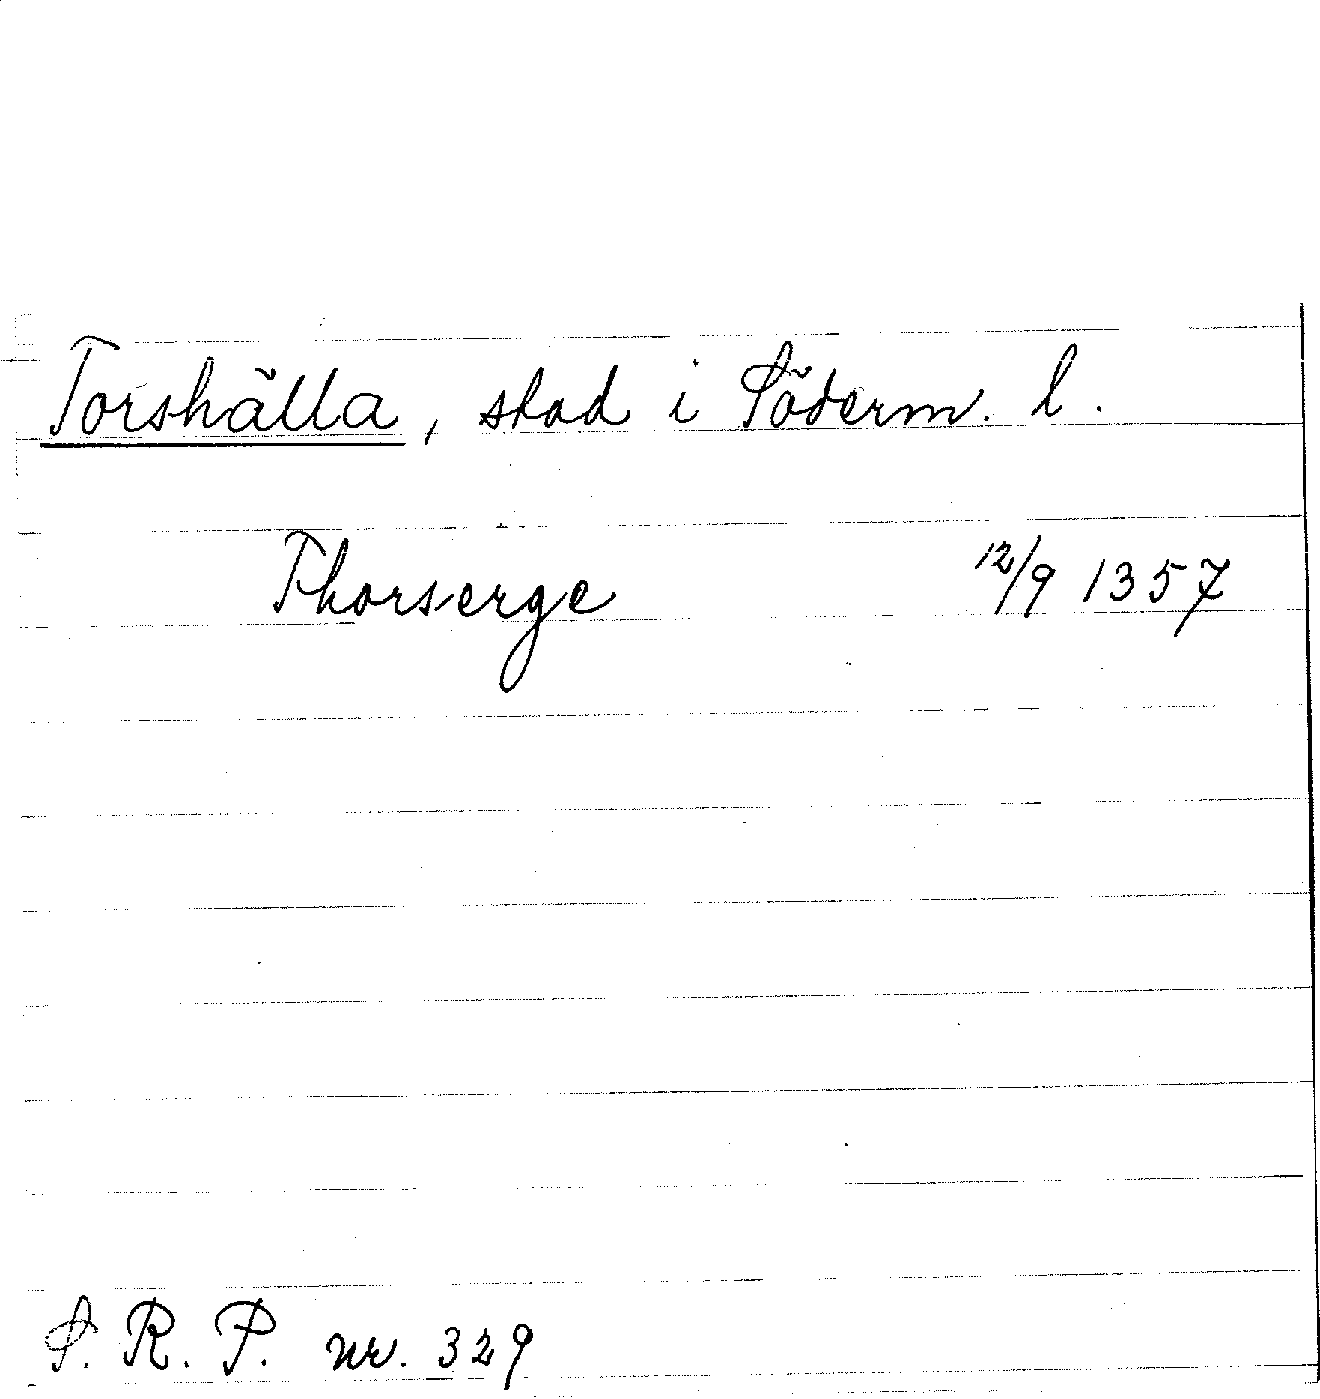 Torshälla, stad i Söderm. l.
Thorserge 12/9 1357
S. R. P. nr. 329